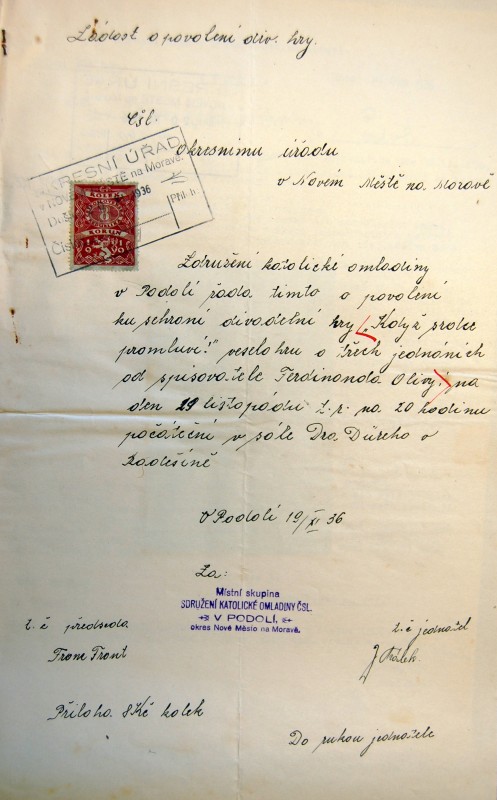 Žádost o povolení div. hry.
Čsl.
Okresnímu úřadu
v Novém Městě na Moravě
OKRESNÍ ÚŘAD
v NOVÉM MĚSTĚ na Moravě.
1936
Příl. h.
KOLEK
8
KORUN
Združení katolické omladiny
v Podolí žáda timto o povolení
ku schraní divadelní hry „Když srdce
promluví!" veselohru o třech jednáních
od spisovatele Ferdinanda Olivy na
den 29 listopádu t.r. na 20 hodinu
počáteční v sále Dra. Düreho v
Radešíně
V Podolí 19/XI 36
Za:
Místní skupina
SDRUŽENÍ KATOLICKÉ OMLADINY ČSL.
V PODOLÍ,
okres Nové Město na Moravě.
t.č předseda
t.č jednatel
Franc Front
J Kálek
Příloha 8Kč kolek
Do rukou jednatele